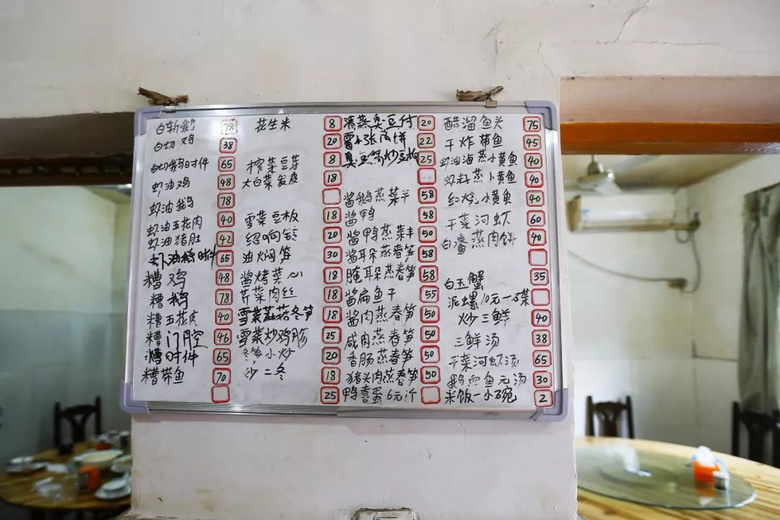 白斩鹅 78
白切鸡 38
白切鹅时件 65
虾油鸡 48
虾油鹅 78
虾油五花肉 40
虾油猪肚 42
虾油鹅时件 65
糟鸡 48
糟鹅 78
糟五花肉 40
糟门腔 46
糟时件 65
糟带鱼 70
花生米 8
20
榨菜豆芽 18
大白菜炎皮 18
雪菜豆板 18
绍响铃 20
油焖笋 30
酱烤茭心 18
芹菜肉丝 18
雪菜菇冬笋 18
雪菜炒鸡肠 25
冬笋小炒 20
炒二冬 18
25
蒸臭豆付 20
霉千张肉饼 22
臭豆 25
酱鹅蒸菜干 58
酱鸭 58
酱鸭蒸菜干 50
酱耳朵蒸春笋 58
腌耳朵蒸春笋 58
酱扁鱼干 55
酱肉蒸春笋 50
咸肉蒸春笋 50
香肠蒸春笋 50
猪头肉蒸春笋 50
鸭喜蛋6元/个
醋溜鱼头 75
干炸带鱼 45
虾油蒸小黄鱼 45
虾籽蒸小黄鱼 40
红烧小黄鱼 40
干菜河虾 60
白鲞蒸肉饼 40
白玉蟹 35
泥螺10元一碟
炒三鲜 40
三鲜汤 38
干菜河虾汤 65
鹅血鱼元汤 30
米饭一小碗 2